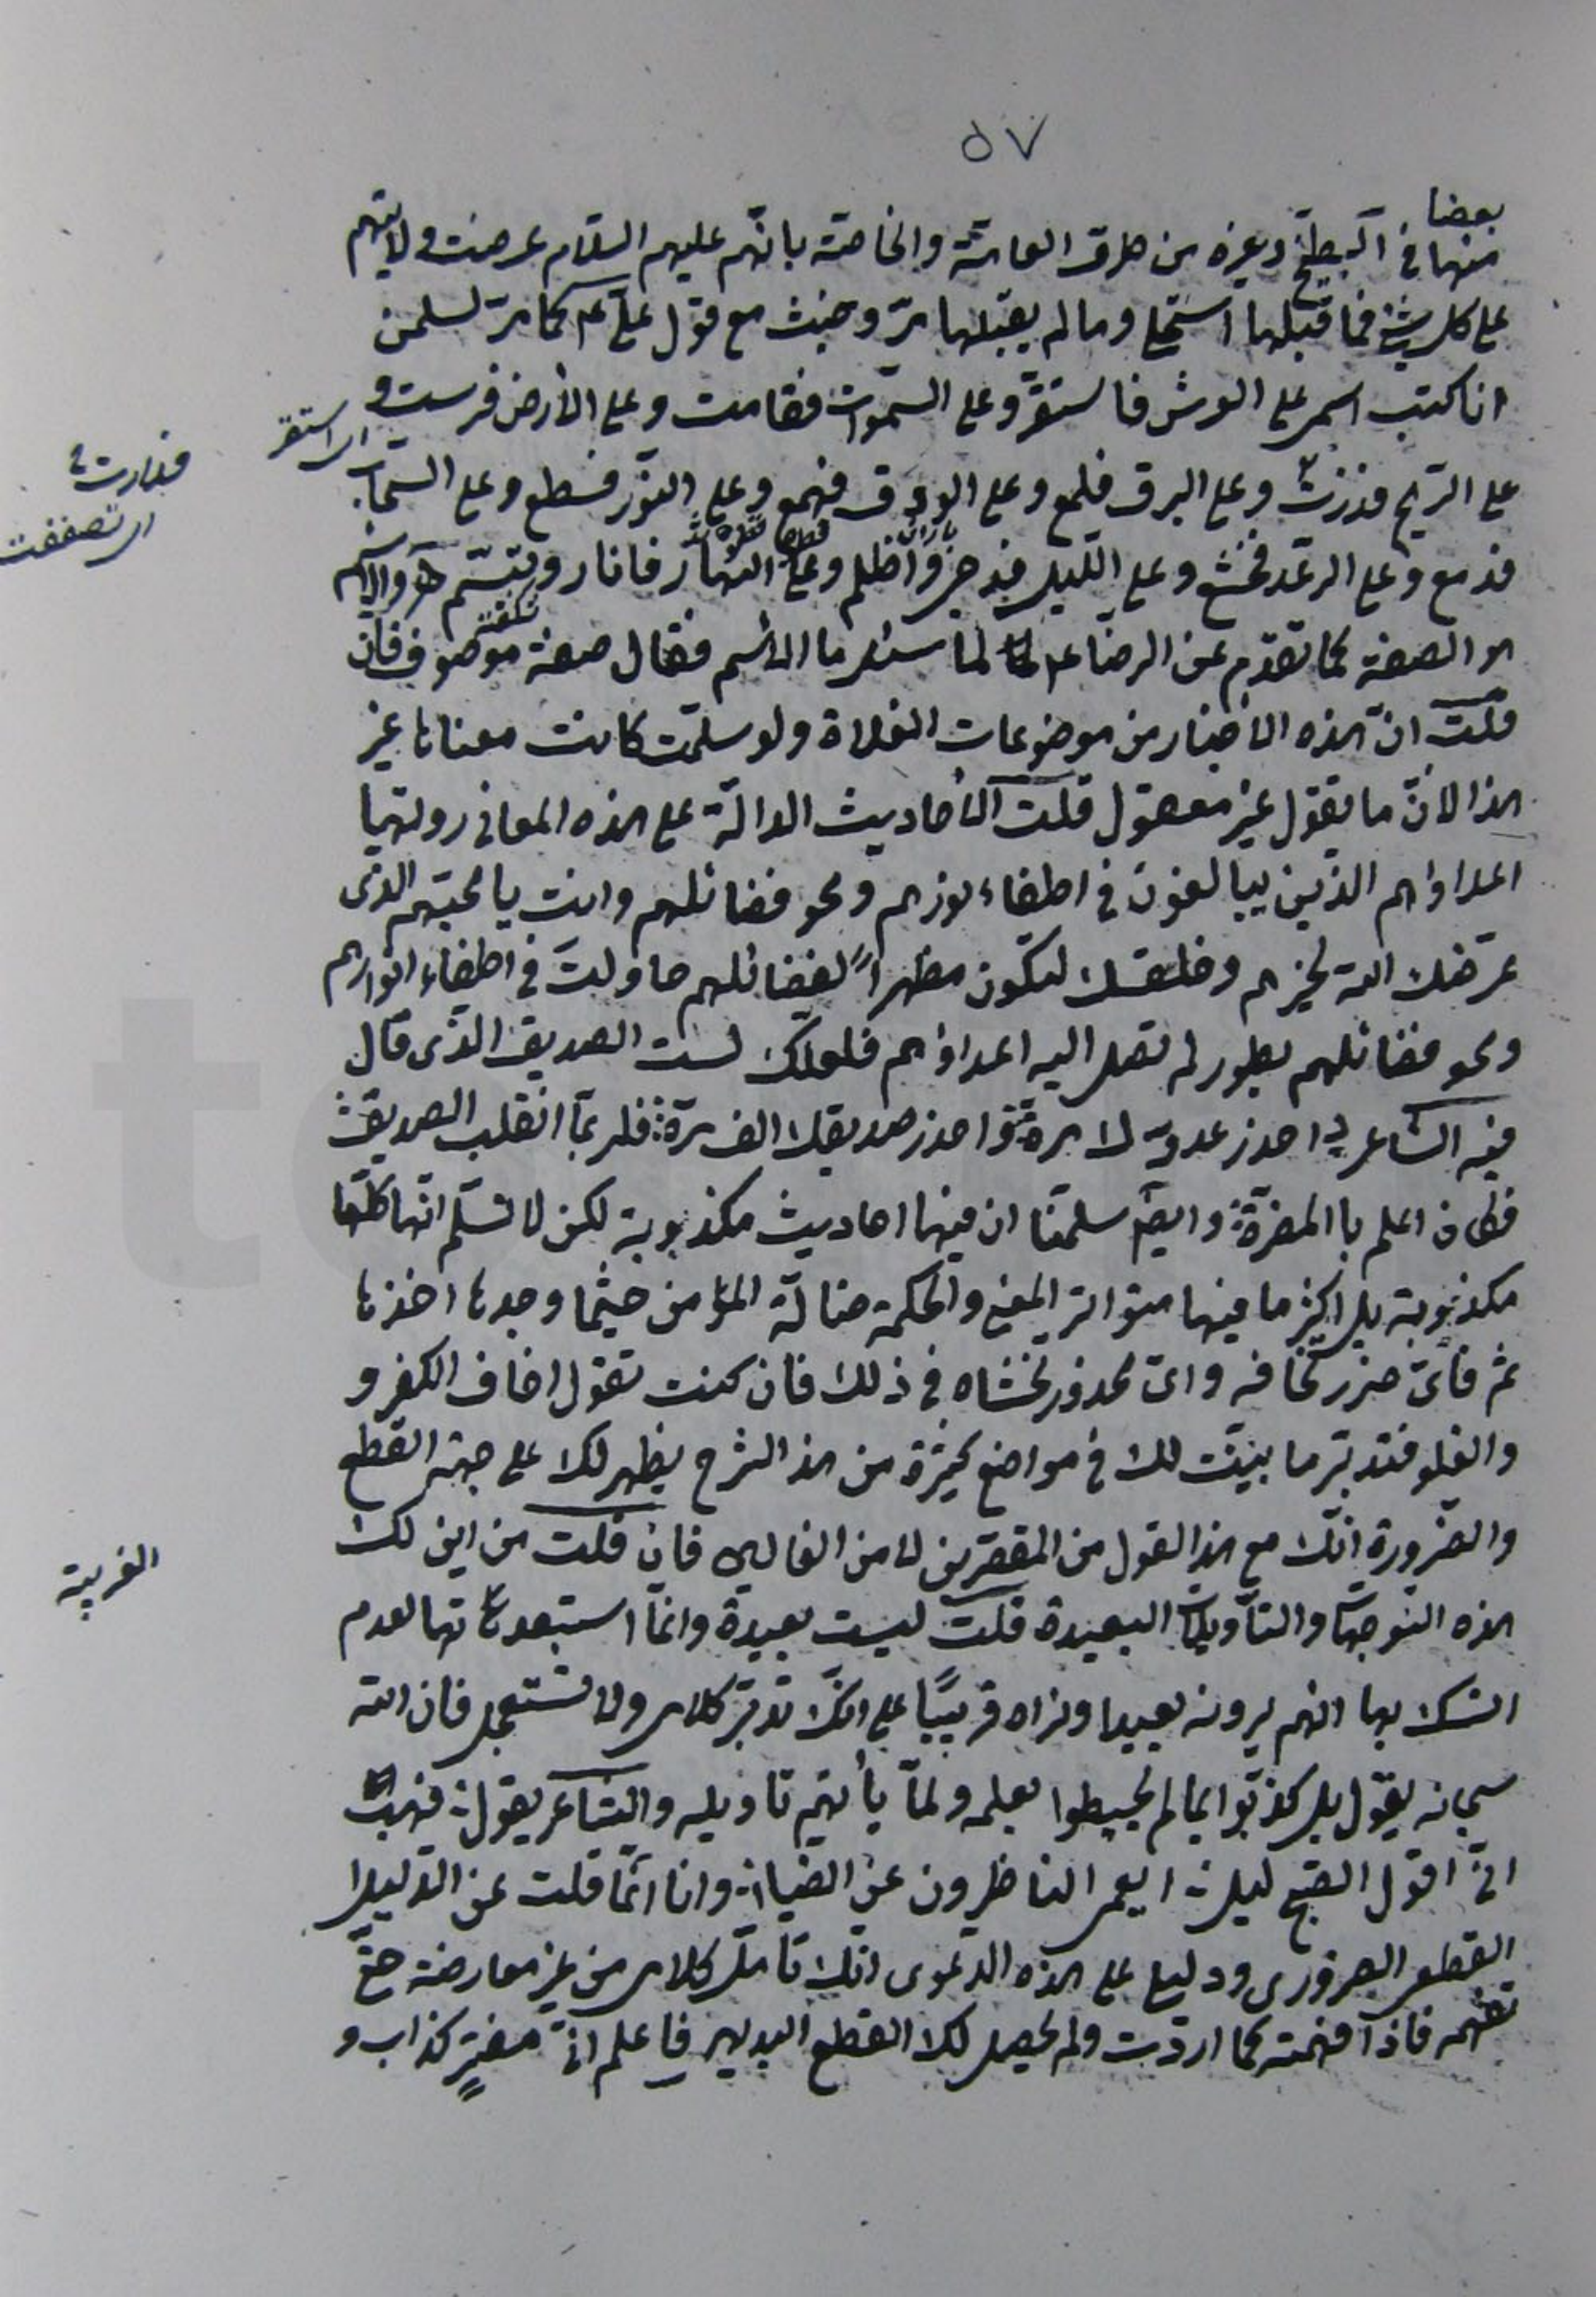 ٥٧
بعضا
منها فى البطيخ وغيره من طرق العامّة والخاصّة بانّهم عليهم السّلام عرضت ولايتهم
على كلّ شئ فما قبلها استحلى وما لم يقبلها مرّ وخبث مع قول علىّ عم كما مرّ لسلمن
انا كتب اسمى على العرش فاستقرّ وعلى السّموات فقامت وعلى الأرض فرست و
اى استقر
على الرّيح فذرت وعلى البرق فلمع وعلى الودق فهمع وعلى النّور فسطع وعلى السّحاب
فدارت
اى تصفقت
باران
فدمع وعلى الرّعد فخشع وعلى اللّيل فدجى واظلم وعلى النّهار فانار وتبسّم والاسم
هو الصفة كما تقدّم عن الرضا عم لما سئل ما الاسم فقال صفة موصوف فان
قلت انّ هذه الاخبار من موضوعات الغلاة ولو سلّمت كانت معناها غير
هذا لانّ ما تقول غير معقول قلت الأحاديث الدالّة على هذه المعانى روتها
اعداؤهم الذين يبالغون فى اطفاء نورهم ومحو فضائلهم وانت يا محبّهم الذى
عرّضك الله لخيرهم وخلقك لتكون مظهراً لفضائلهم حاولت فى اطفاء انوارهم
ومحو فضائلهم بطور لم تصل اليه اعداؤهم فلعلّك لست الصديق الذى قال
فيه الشاعر احذر عدوّك مرة واحذر صديقك الف مرّة فلربّما انقلب الصديق
فكان اعلم با المضرّة وايضً سلمنا ان فيها احاديث مكذوبة لكن لا نسلّم انّها كلّها
مكذوبة بل اكثر ما فيها متواتر المعنى والحكمة ضالّة المؤمن حيثما وجدها اخذها
ثم فاىّ ضرر تخافه واىّ محذور تخشاه فى ذلك فان كنت تقول اخاف الكفر و
والغلو فتدبّر ما بيّنت لك فى مواضع كثيرة من هذا الشرح يظهر لك على جهة القطع
والضّرورة انّك مع هذا القول من المقصّرين لا من الغالين فان قلت من اين لك
الغريبة
هذه التّوجيهات والتأويلات البعيدة قلت ليست بعيدة وانّما استبعدتها لعدم
انسك بها انهم يرونه بعيدا ونراه قريبًا على انّك تدبّر كلامى ولا تستعجل فان الله
سبحانه يقول بل كذّبوا بما لم يحيطوا بعلمه ولمّا يأتهم تاويله والشاعر يقول فهب
انّى اقول الصّبح ليل ايعمى الناظرون عن الضياء وانا انّما قلت عن الدّليل
القطعى الضرورى ودليلى على هذه الدعوى انّك تأمّل كلامى من غير معارضة حتّى
تفهمه فاذا فهمته كما اردت ولم يحصل لك القطع البديهى فاعلم انّى مفترٍ كذّاب و